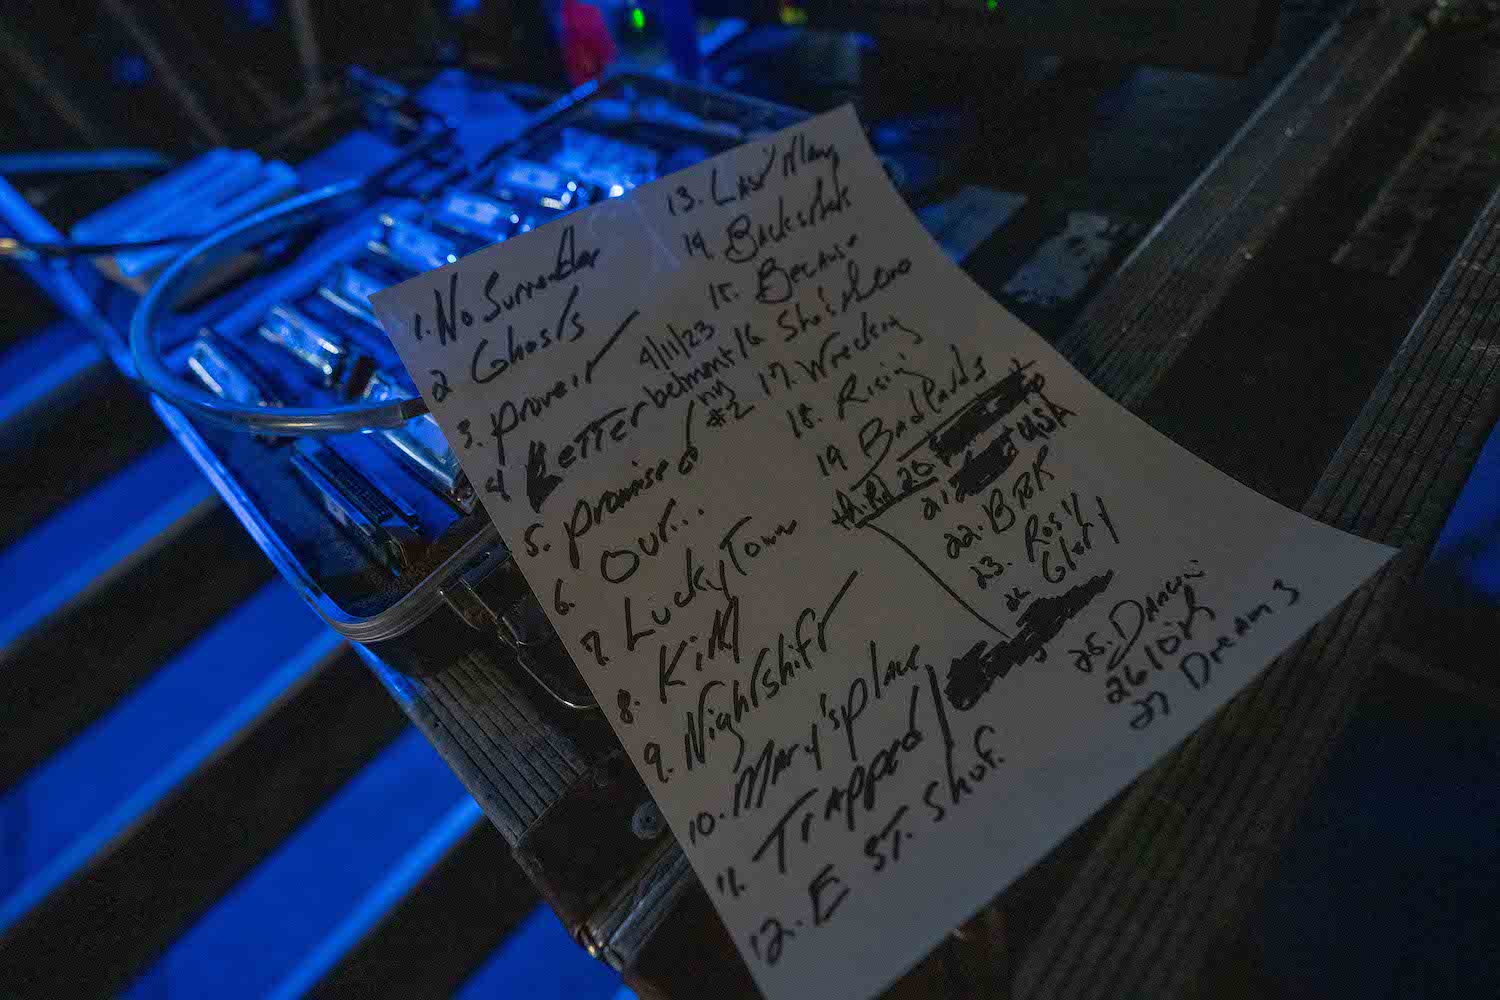 1. No Surrender
2 Ghosts
3. prove it
4 Letter
5. promise
6. Our...
7. Lucky Town
8. Kitty
9. Nightshift
10. Mary's place
11. Trapped
12. E ST. Shuf.
4/11/23
belmont
ny
#2
13. Last Man
14. Backstreets
15. Because
16 She's the one
17. Wrecking
18. Rising
19 Badlands
20
21. USA
22. BTR
23. Rosy
24 Glory
25. Dancin
26 10th
27 Dream 3